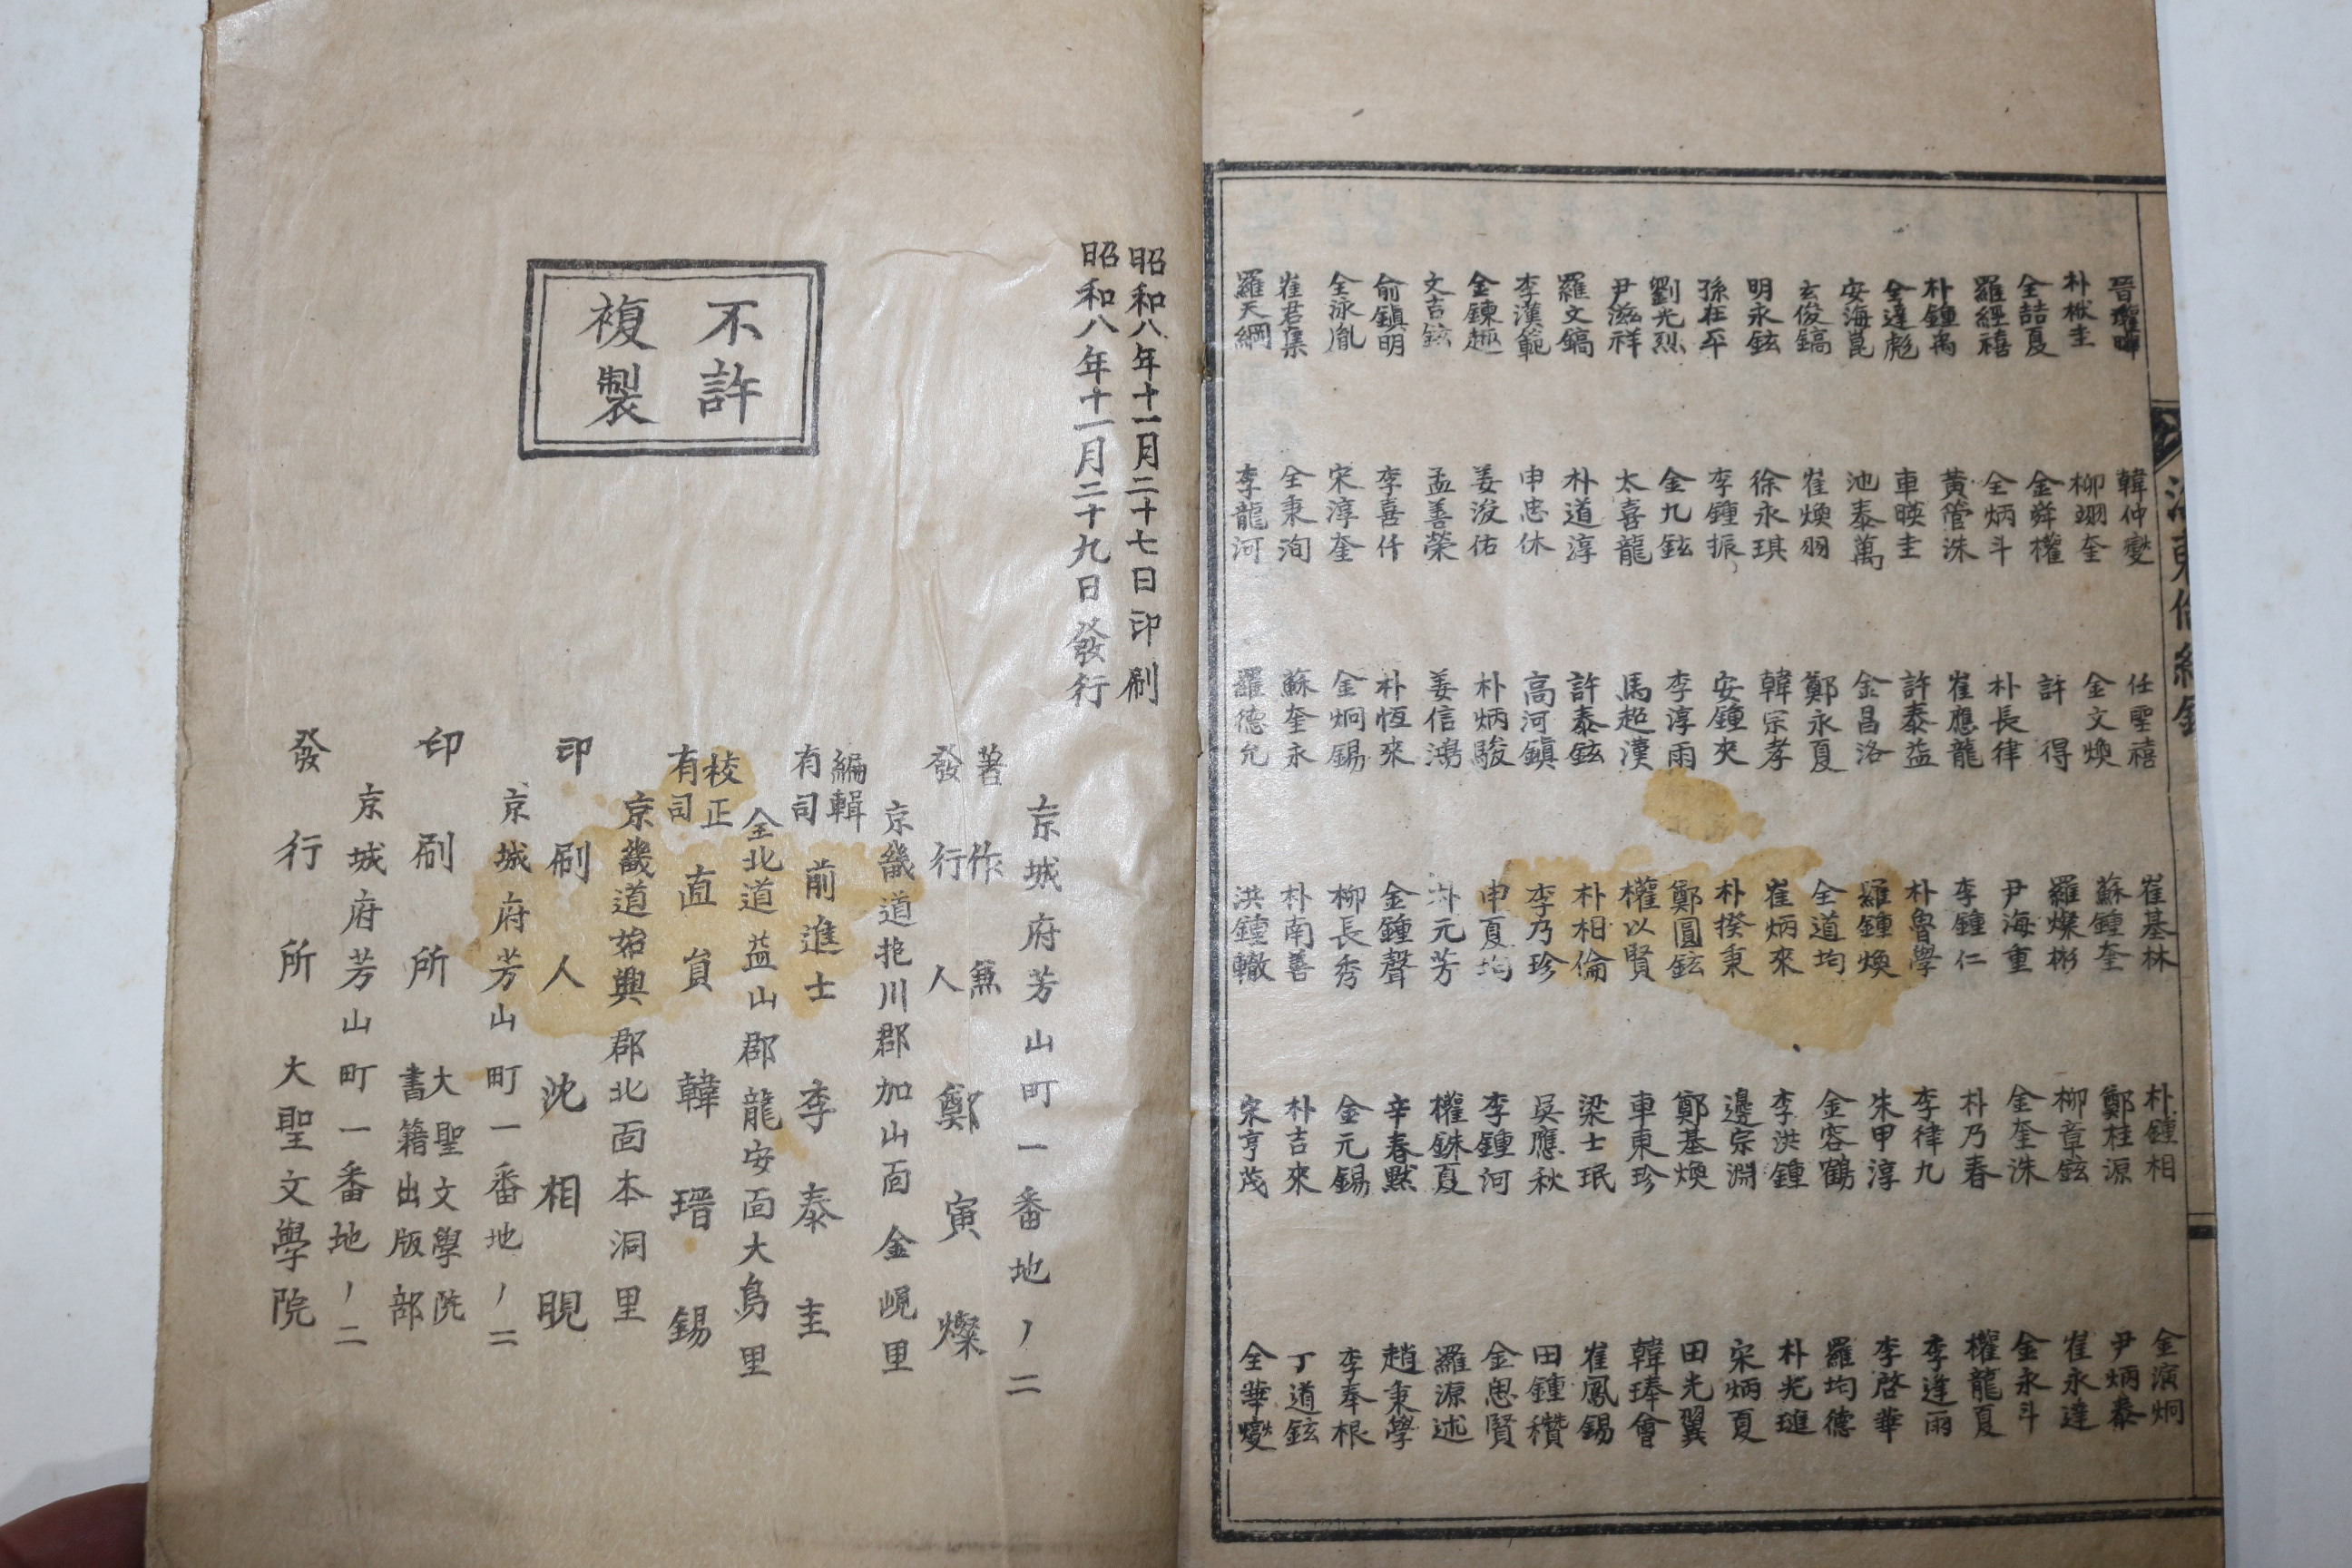 晉瓘暉
朴楸圭
全喆夏
羅經禧
朴鍾禹
全達彪
安海崑
玄俊鎬
明永鉉
孫在平
劉光烈
尹滋祥
羅文鎬
李漢範
金鍊趣
文吉鉉
俞鎭明
全泳胤
崔君集
羅天綱
韓仲燮
柳翊奎
金舜權
全炳斗
黃管洙
車暎圭
池泰萬
崔煥羽
徐永琪
李鍾振
金九鉉
太喜龍
朴道淳
申忠休
姜浚佑
孟善榮
李喜仟
宋淳奎
全秉洵
李龍河
任聖禧
金文煥
許得
朴長律
崔應龍
許泰益
金昌洛
鄭永夏
韓宗孝
安鍾夾
李淳雨
馬超漢
許泰鉉
高河鎭
朴炳駿
姜信鴻
朴恆來
金炯錫
蘇奎永
羅德允
崔基林
蘇鍾奎
羅燦彬
尹海重
李鍾仁
朴魯學
羅鍾煥
全道均
崔炳來
朴揆秉
鄭圓鉉
權以賢
朴相倫
李乃珍
申夏均
朴元芳
金鍾聲
柳長秀
朴南善
洪鍾轍
朴鍾相
鄭桂源
柳章鉉
金奎洙
朴乃春
李律九
朱甲淳
金容鶴
李洪鍾
邊宗淵
鄭基煥
車東珍
梁士珉
吳應秋
李鍾河
權銖夏
辛春默
金元錫
朴吉來
宋亨茂
金演炯
尹炳泰
崔永達
金永斗
權龍夏
李逢雨
李啓華
羅均德
朴光璡
宋炳夏
田光翼
韓琫會
崔鳳錫
田鍾穳
金思賢
羅源述
趙秉學
李奉根
丁道鉉
全華燮
昭和八年十一月二十七日印刷
昭和八年十一月二十九日發行
不許
複製
京城府芳山町一番地ノ二
著作兼
發行人 鄭寅燦
京畿道抱川郡加山面金峴里
編輯
有司 前進士 李泰圭
全北道益山郡龍安面大鳥里
校正
有司 直員 韓瑨錫
京畿道始興郡北面本洞里
印刷人 沈相晛
京城府芳山町一番地ノ二
印刷所 大聖文學院
書籍出版部
京城府芳山町一番地ノ二
發行所 大聖文學院